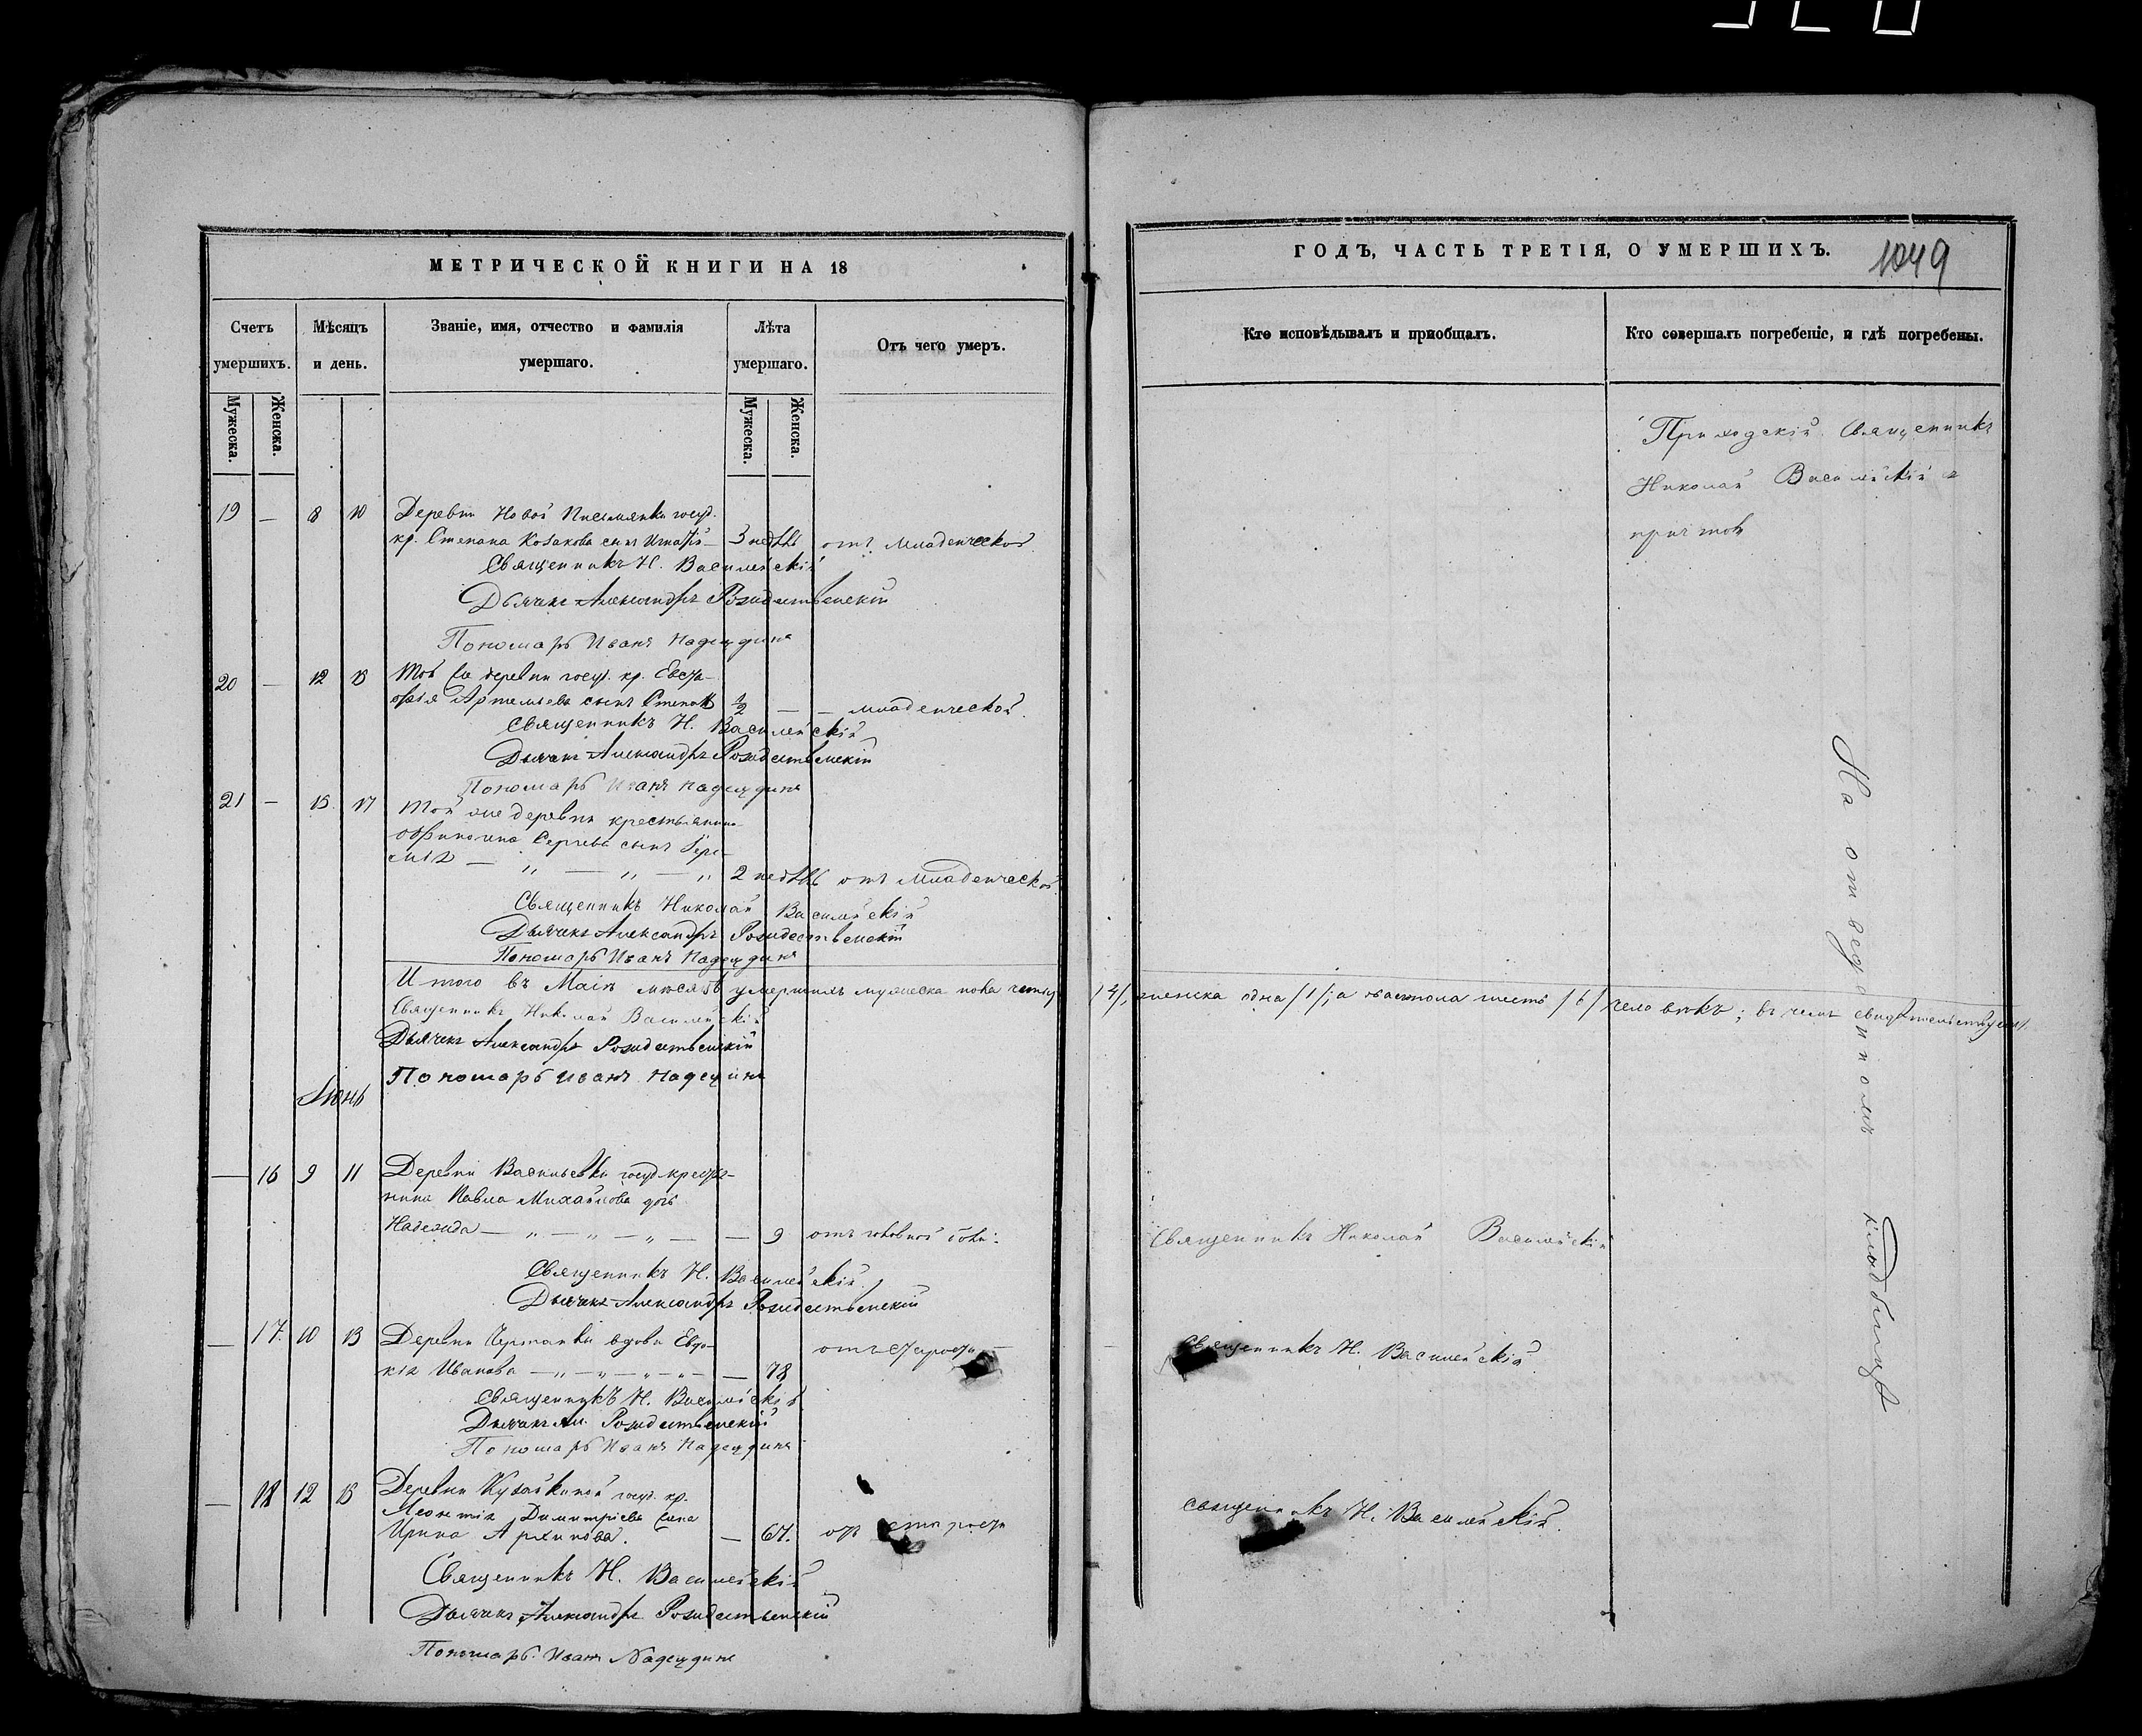 МЕТРИЧЕСКОЙ КНИГИ НА 18
Счетъ умершихъ.
Мѣсяцъ и день.
Званіе, имя, отчество и фамилія умершаго.
Лѣта умершаго.
Отъ чего умеръ.
Мужеска.
Женска.
Мужеска.
Женска.
19 — 8 10 Деревни Новой Письмянки госуд.
кр. Степана Козакова сынъ Игнатій — 3 недѣль отъ младенческой
Священникъ Н. Василейскій
Дьячекъ Александръ Рождественскій
Пономарь Иванъ Надеждинъ
20 — 12 13 Той же деревни госуд. кр. Евста-
фія Артемьева сынъ Стефанъ 1/2 — — младенческой.
Священникъ Н. Василейскій
Дьячекъ Александръ Рождественскій
Пономарь Иванъ Надеждинъ
21 — 15 17 Той же деревни крестьянина
Сергѣева сынъ Іере-
мія — „ — „ — „ 2 недѣль отъ младенческой.
Священникъ Николай Василейскій
Дьячекъ Александръ Рождественскій
Пономарь Иванъ Надеждинъ
Итого въ Маіѣ мѣсяцѣ умершихъ мужеска пола
Священникъ Николай Василейскій
Дьячекъ Александръ Рождественскій
Пономарь Иванъ Надеждинъ
Іюнь
— 16 9 11 Деревни Васильевки госуд. крестья-
нина Павла Михайлова дочь
Надежда — „ — „ — „ — — 9 отъ головной боли.
Священникъ Н. Василейскій
Дьячекъ Александръ Рождественскій
— 17. 10 13 Деревни вдова Евдо-
кія Иванова — „ — „ — „ — — 78 отъ старости —
Священникъ Н. Василейскій
Дьячекъ Ал. Рождественскій
Пономарь Иванъ Надеждинъ
— 18 12 15 Деревни Кузайкиной госуд. кр.
Леонтія Димитріева жена
Ирина Архипова. — 67. отъ старости
Священникъ Н. Василейскій
Дьячекъ Александръ Рождественскій
Пономарь Иванъ Надеждинъ
ГОДЪ, ЧАСТЬ ТРЕТІЯ, О УМЕРШИХЪ.
1049
Кто исповѣдывалъ и пріобщалъ.
Кто совершалъ погребеніе, и гдѣ погребены.
Приходскій Священникъ
Николай Василейскій съ
причтомъ
/4/, женска одна /1/; а обоего пола /6/ человѣкъ; въ чемъ свидѣтельствуемъ.
Священникъ Николай Василейскій
Священникъ Н. Василейскій
Священникъ Н. Василейскій.
На отведенномъ кладбищѣ